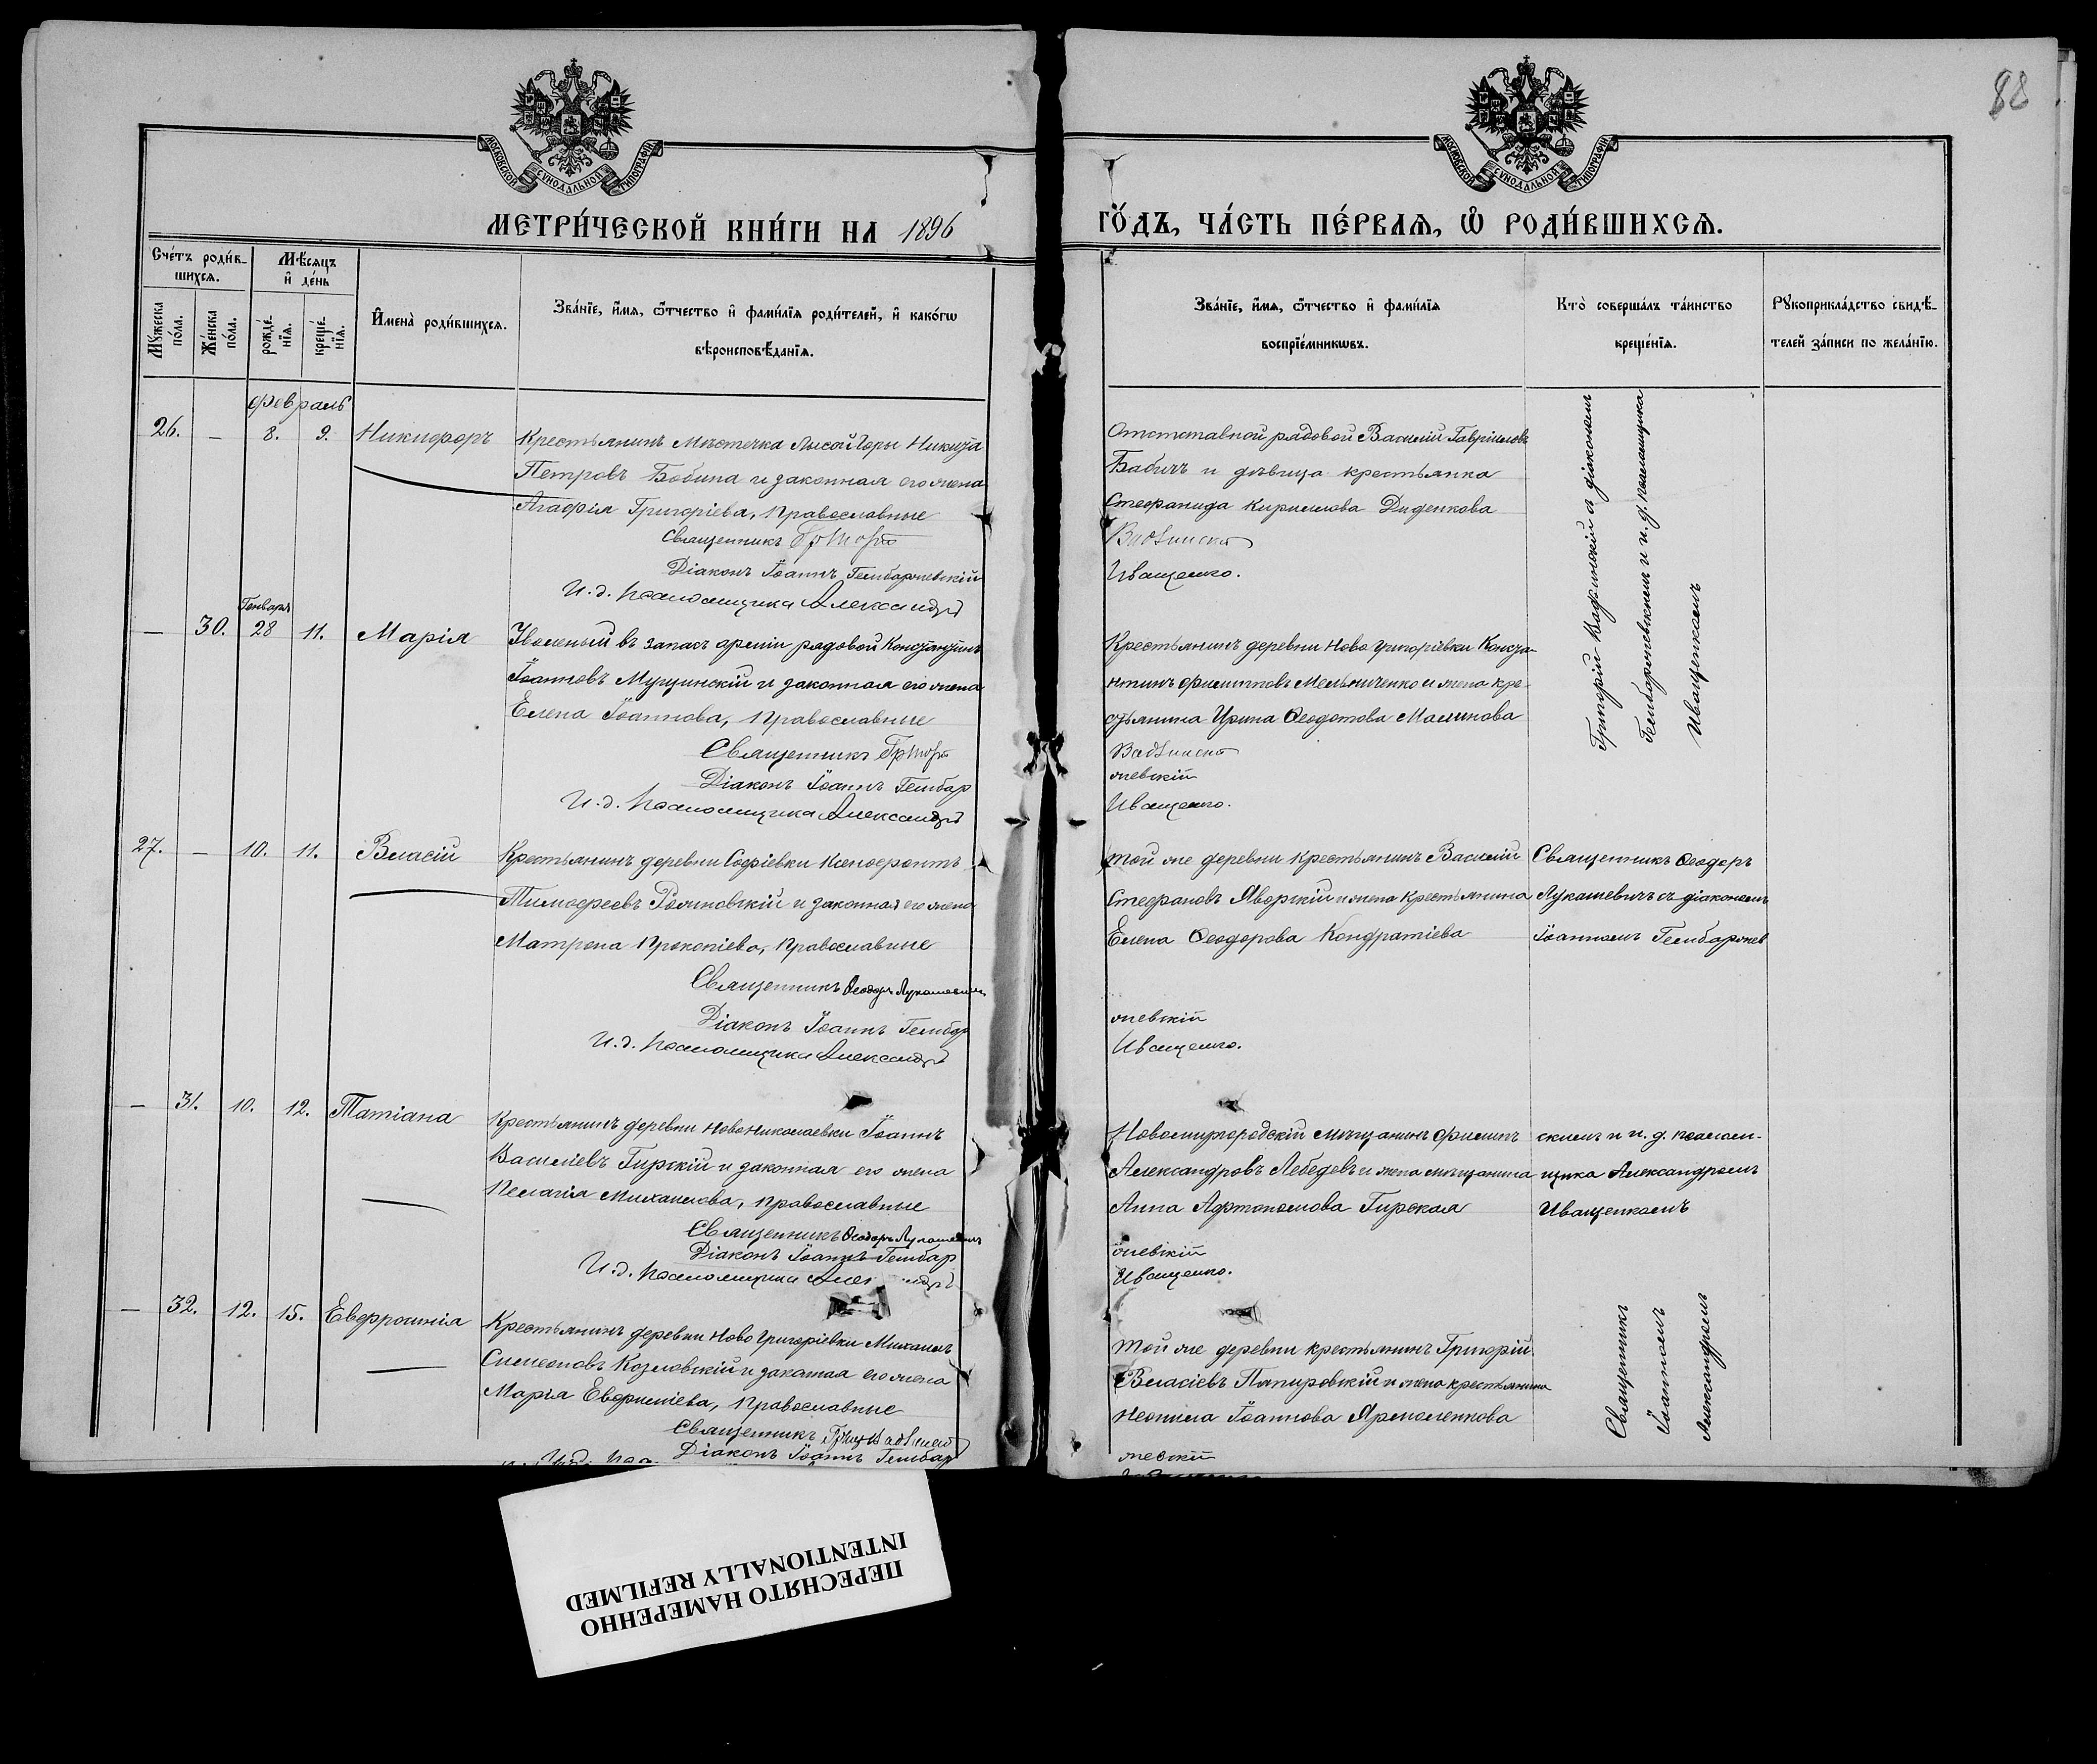 88
МОСКОВСКОЙ СѴНОДАЛЬНОЙ ТИПОГРАФІИ
МОСКОВСКОЙ СѴНОДАЛЬНОЙ ТИПОГРАФІИ
МЕТРИ́ЧЕСКОЙ КНИ́ГИ НА 1896
ГО́ДЪ, ЧА́СТЬ ПЕ́РВАЯ, Ѡ҆ РОДИ́ВШИХСЯ.
Сче́тъ роди́в-
шихся.
Мѣ́сяцъ
и҆ де́нь
Мꙋ́жеска
по́ла.
Же́нска
по́ла.
рожде́-
нїя.
креще́-
нїя.
И҆мена̀ роди́вшихся.
Зва́нїе, и҆́мя, ѻ҆́тчество и҆ фами́лїя роди́телей, и҆ како́гѡ
вѣроисповѣ́данїя.
Зва́нїе, и҆́мя, ѻ҆́тчество и҆ фами́лїя
воспрїе́мникѡвъ.
Кто̀ соверша́лъ та́инство
креще́нїя.
Рꙋкоприкла́дство свидѣ́-
телей за́писи по жела́нїю.
Февраль
26. — 8. 9. Никифоръ
Крестьянинъ Мѣстечка Лысой Горы Никита
Петровъ Бобина и законная его жена
Агафія Григоріева, православные
Священникъ
Діаконъ Іоаннъ Гембаржевскій
И. д. псаломщика Александръ
Отставной рядовой Василій Гавріиловъ
Бабичъ и дѣвица крестьянка
Стефанида Кириллова Диденкова
Иващенко.
Григорій с діакономъ
Гембаржевскимъ и и. д. псаломщика
Иващенкомъ
Генваря
— 30. 28 11. Марія
Уволеный въ запасъ арміи рядовой Константинъ
Іоанновъ и законная его жена
Елена Іоаннова, православные
Священникъ
Діаконъ Іоаннъ Гембар
И. д. псаломщика Александръ
Крестьянинъ деревни Ново Григоріевки Конста-
нтинъ Филипповъ Мельниченко и жена кре-
стьянина Ирина Феодотова Малинова
жевскій
Иващенко.
27. — 10. 11. Власій
Крестьянинъ деревни Софіевки Ксенофонтъ
Тимофеевъ и законная его жена
Матрона Прокопіева, православные
Священникъ Феодоръ Лукашевичъ
Діаконъ Іоаннъ Гембар
И. д. псаломщика Александръ
той же деревни крестьянинъ Василій
Стефановъ Яворскій и жена крестьянина
Елена Феодорова Кондратіева
жевскій
Иващенко.
Священникъ Феодоръ
Лукашевичъ съ діакономъ
Іоанномъ Гембаржев
— 31. 10. 12. Татіана
Крестьянинъ деревни Новониколаевки Іоаннъ
Василіевъ Гирскій и законная его жена
Пелагія Михаилова, православные
Священникъ Феодоръ Лукашевичъ
Діаконъ Іоаннъ Гембар
И. д. псаломщика
Новомиргородскій мѣщанинъ Филиппъ
Александровъ Лебедевъ и жена мѣщанина
Анна Афтономова Гирская
жевскій
Иващенко.
скимъ и и. д. псалом-
щика Александромъ
Иващенкомъ
— 32. 12. 15. Евфросинія
Крестьянинъ деревни Ново Григоріевки Михаилъ
Симеоновъ Козловскій и законная его жена
Марія Евфиміева, православные
Священникъ
Діаконъ Іоаннъ Гембар
той же деревни крестьянинъ Григорій
Власіевъ Пяпировскій и жена крестьянина
Неонила Іоаннова Ярмоленкова
жевскій
Священникъ
Іоанномъ
Александромъ
ПЕРЕСНЯТО НАМЕРЕННО
INTENTIONALLY REFILMED